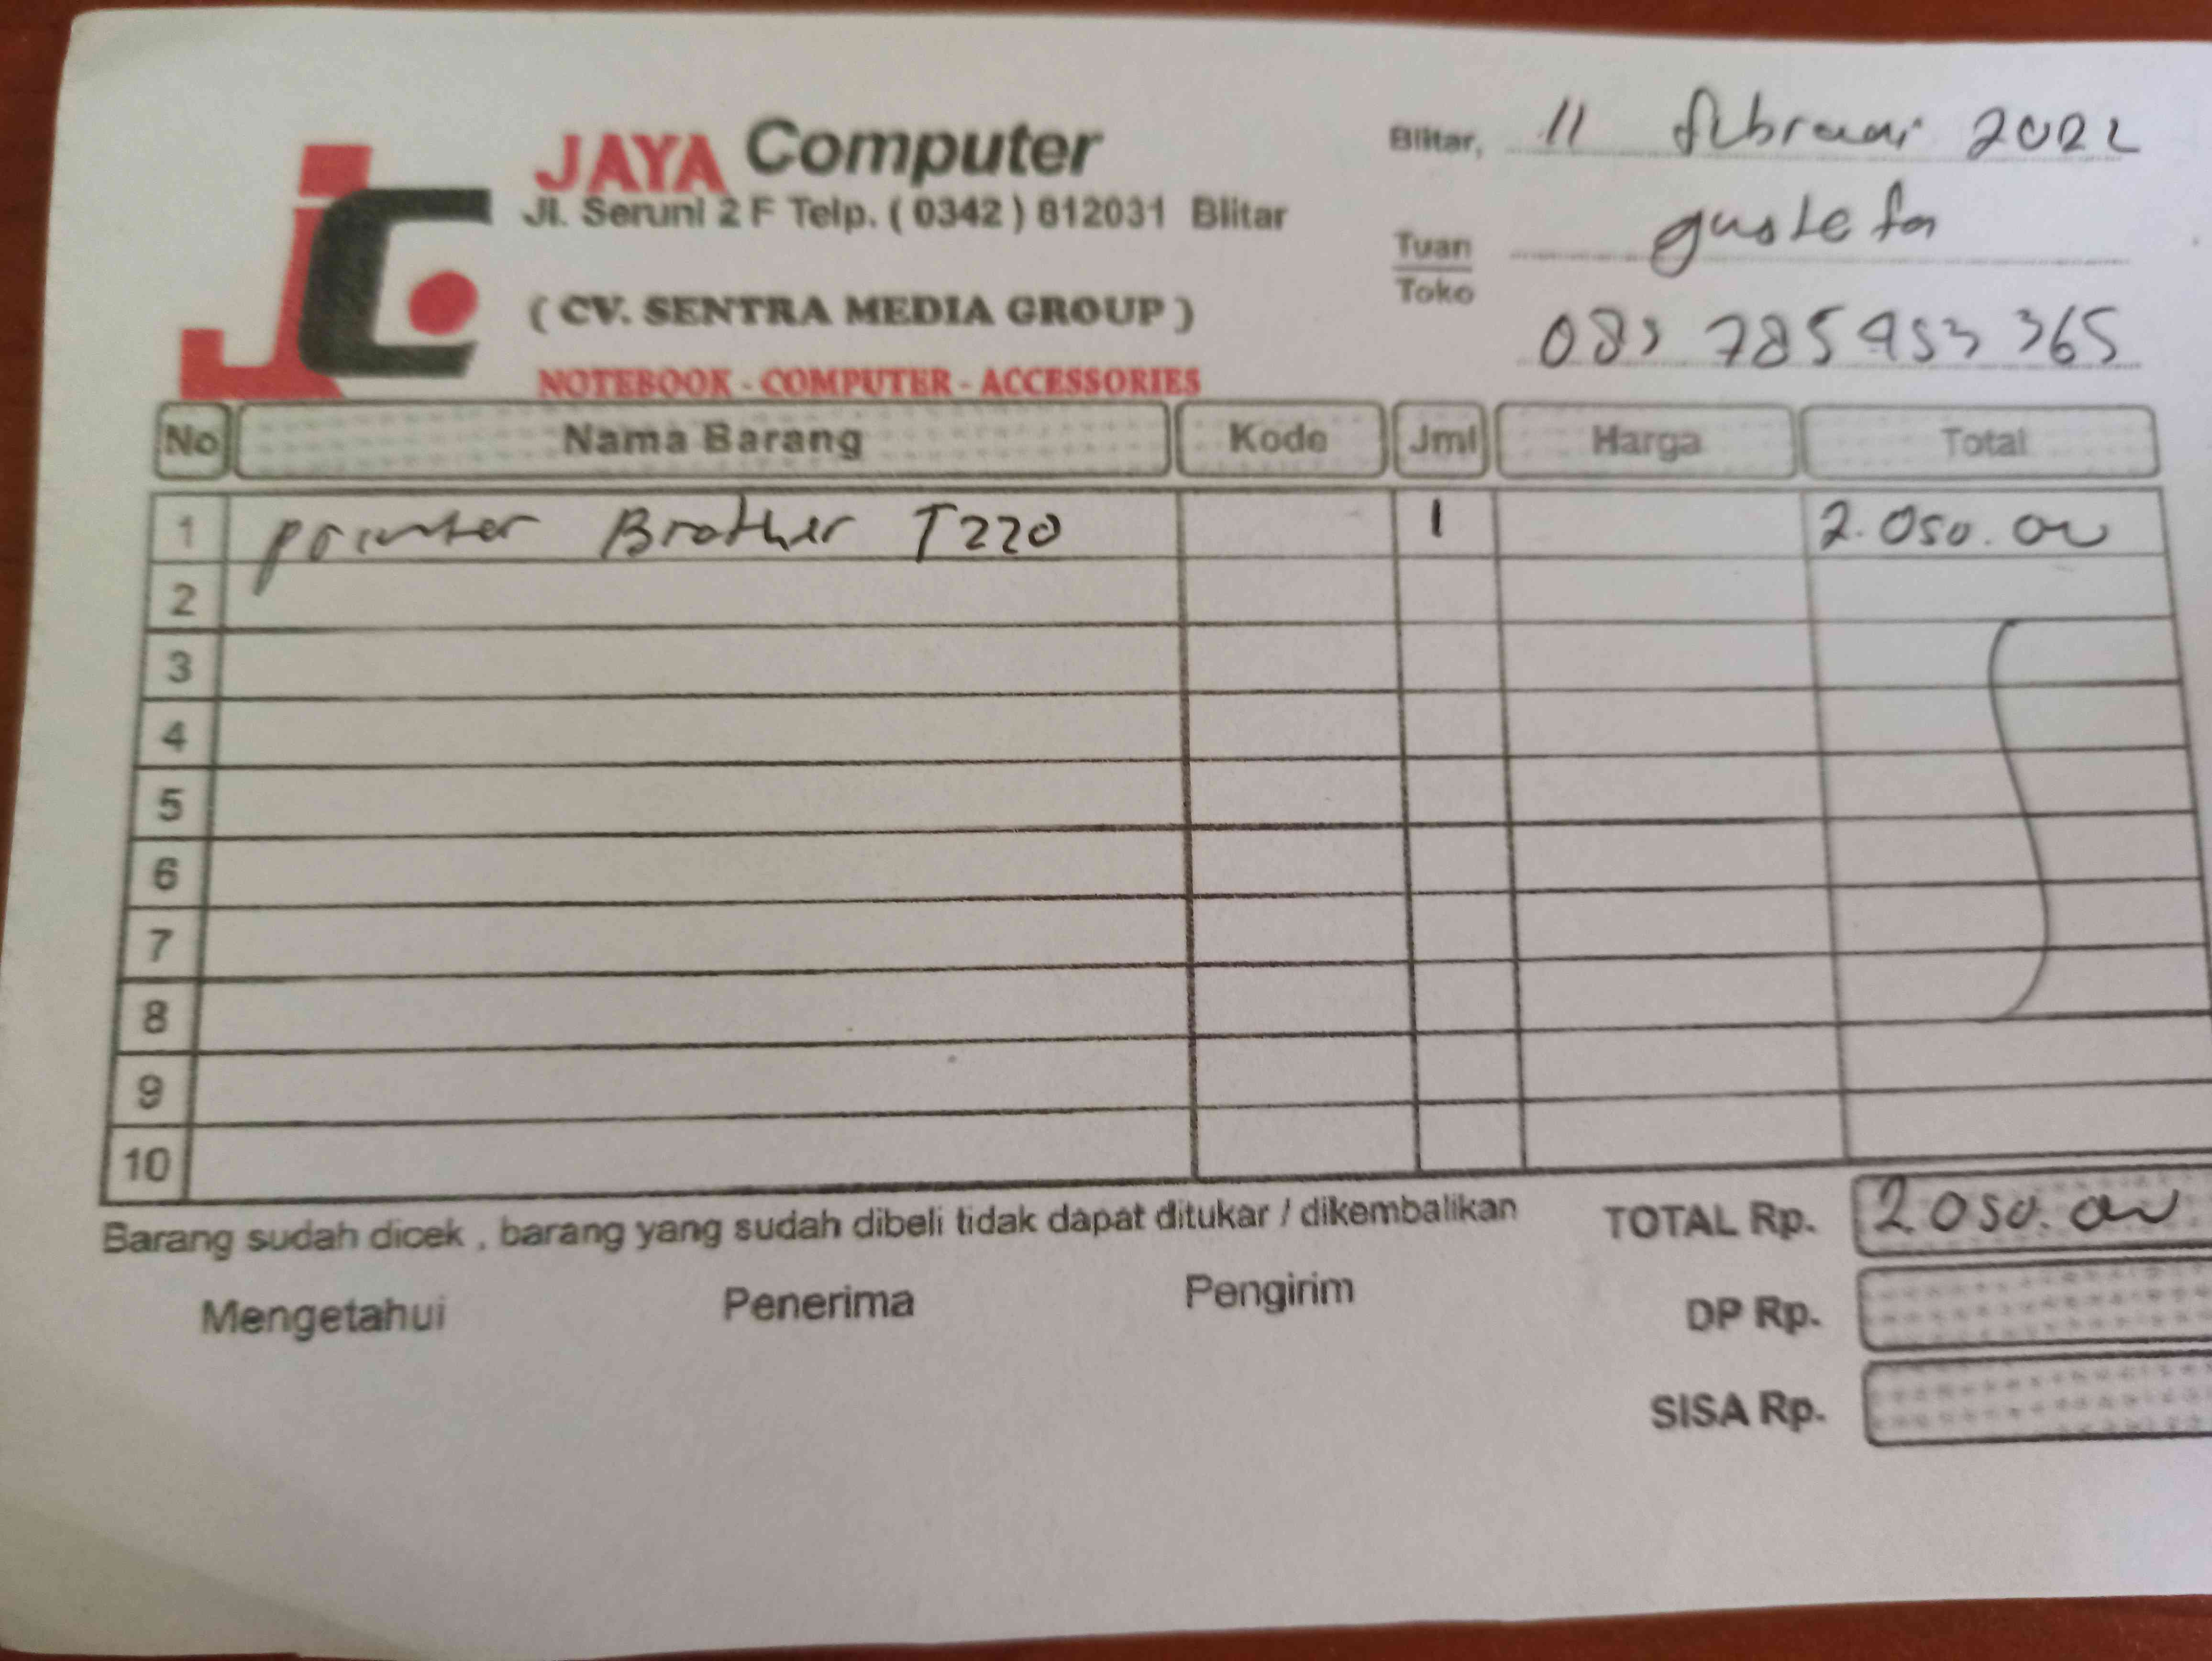 JAYA Computer
Jl. Seruni 2 F Telp. ( 0342 ) 812031 Blitar
( CV. SENTRA MEDIA GROUP )
NOTEBOOK - COMPUTER - ACCESSORIES
Blitar, 11 februari 2022
Tuan
Toko
No Nama Barang Kode Jml Harga Total
1 printer Brother T220 1 2.050.000
2
3
4
5
6
7
8
9
10
Barang sudah dicek , barang yang sudah dibeli tidak dapat ditukar / dikembalikan
TOTAL Rp. 2.050.000
Mengetahui Penerima Pengirim
DP Rp.
SISA Rp.